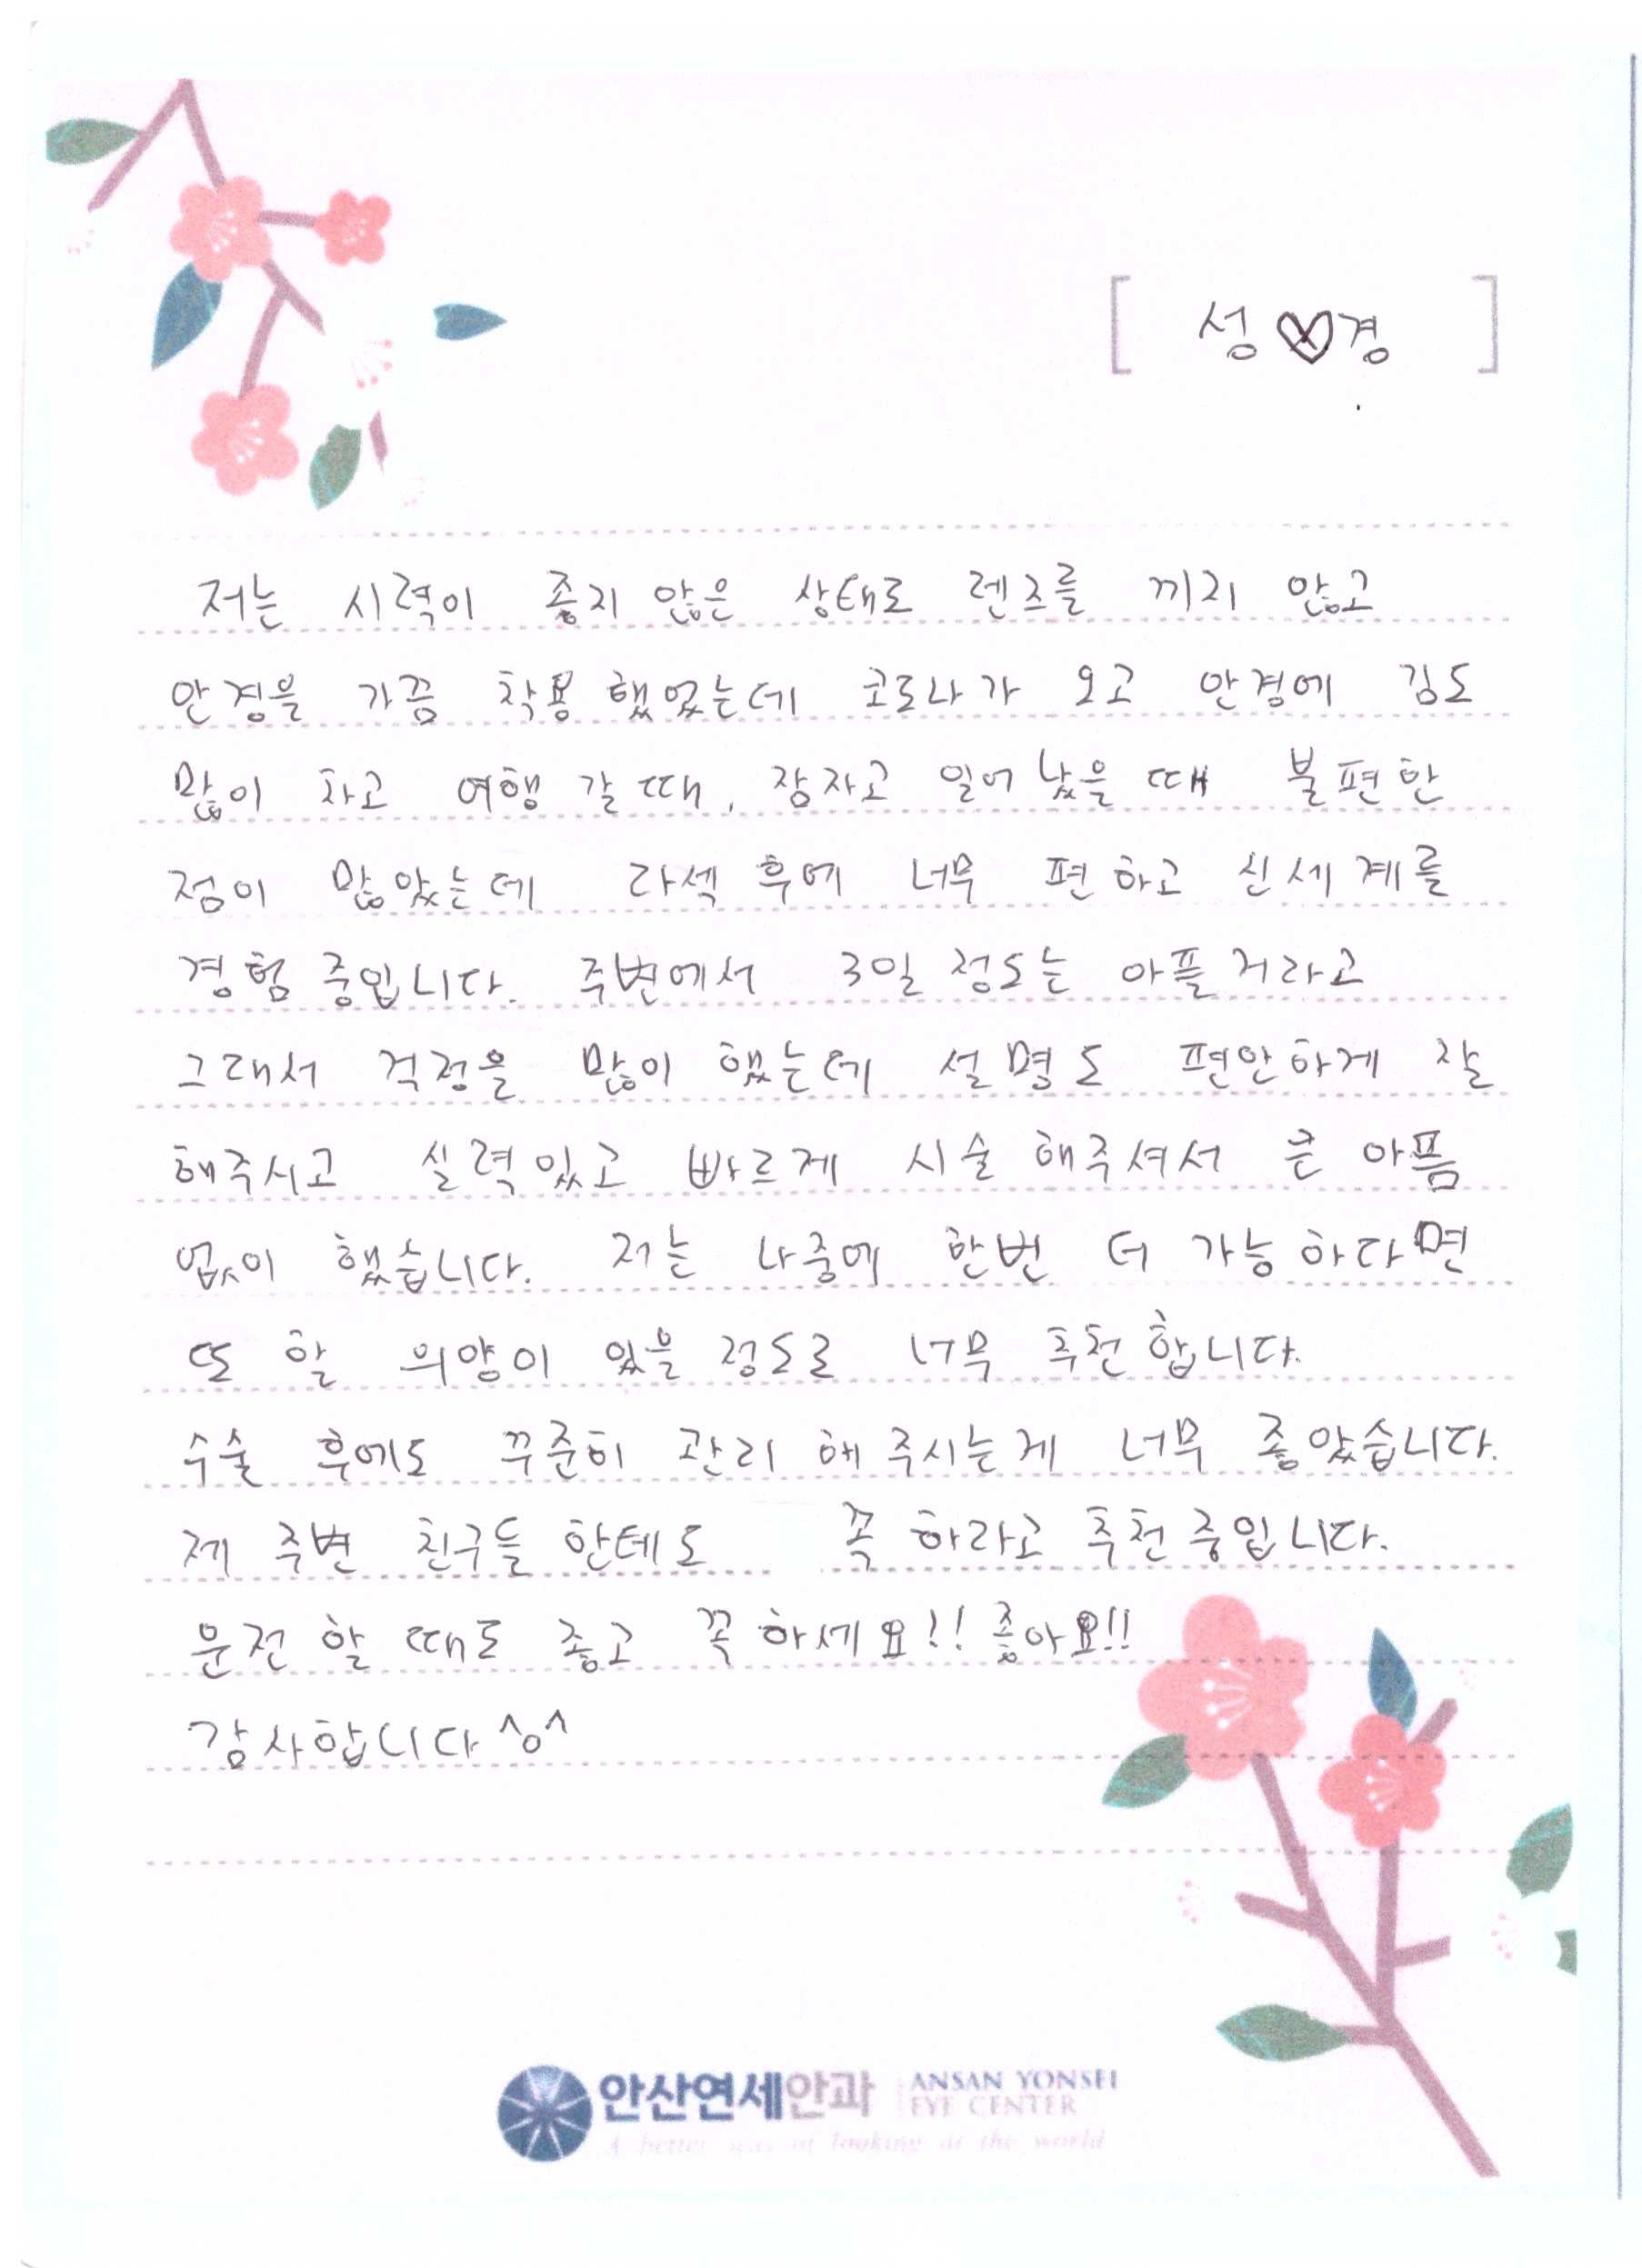 [ 성♡경 ]
저는 시력이 좋지 않은 상태로 렌즈를 끼지 않고
안경을 가끔 착용 했었는데 코로나가 오고 안경에 김도
많이 차고 여행 갈 때, 잠자고 일어 났을 때 불편한
점이 많았는데 라섹 후에 너무 편하고 신세계를
경험 중입니다. 주변에서 3일 정도는 아플거라고
그래서 걱정을 많이 했는데 설명도 편안하게 잘
해주시고 실력있고 빠르게 시술 해주셔서 큰 아픔
없이 했습니다. 저는 나중에 한번 더 가능하다면
또 할 의양이 있을 정도로 너무 추천합니다.
수술 후에도 꾸준히 관리 해 주시는게 너무 좋았습니다.
제 주변 친구들 한테도 꼭 하라고 추천 중입니다.
운전 할 때도 좋고 꼭 하세요!! 좋아요!!
감사합니다^o^
안산연세안과 ANSAN YONSEI
EYE CENTER
A better way of looking at the world